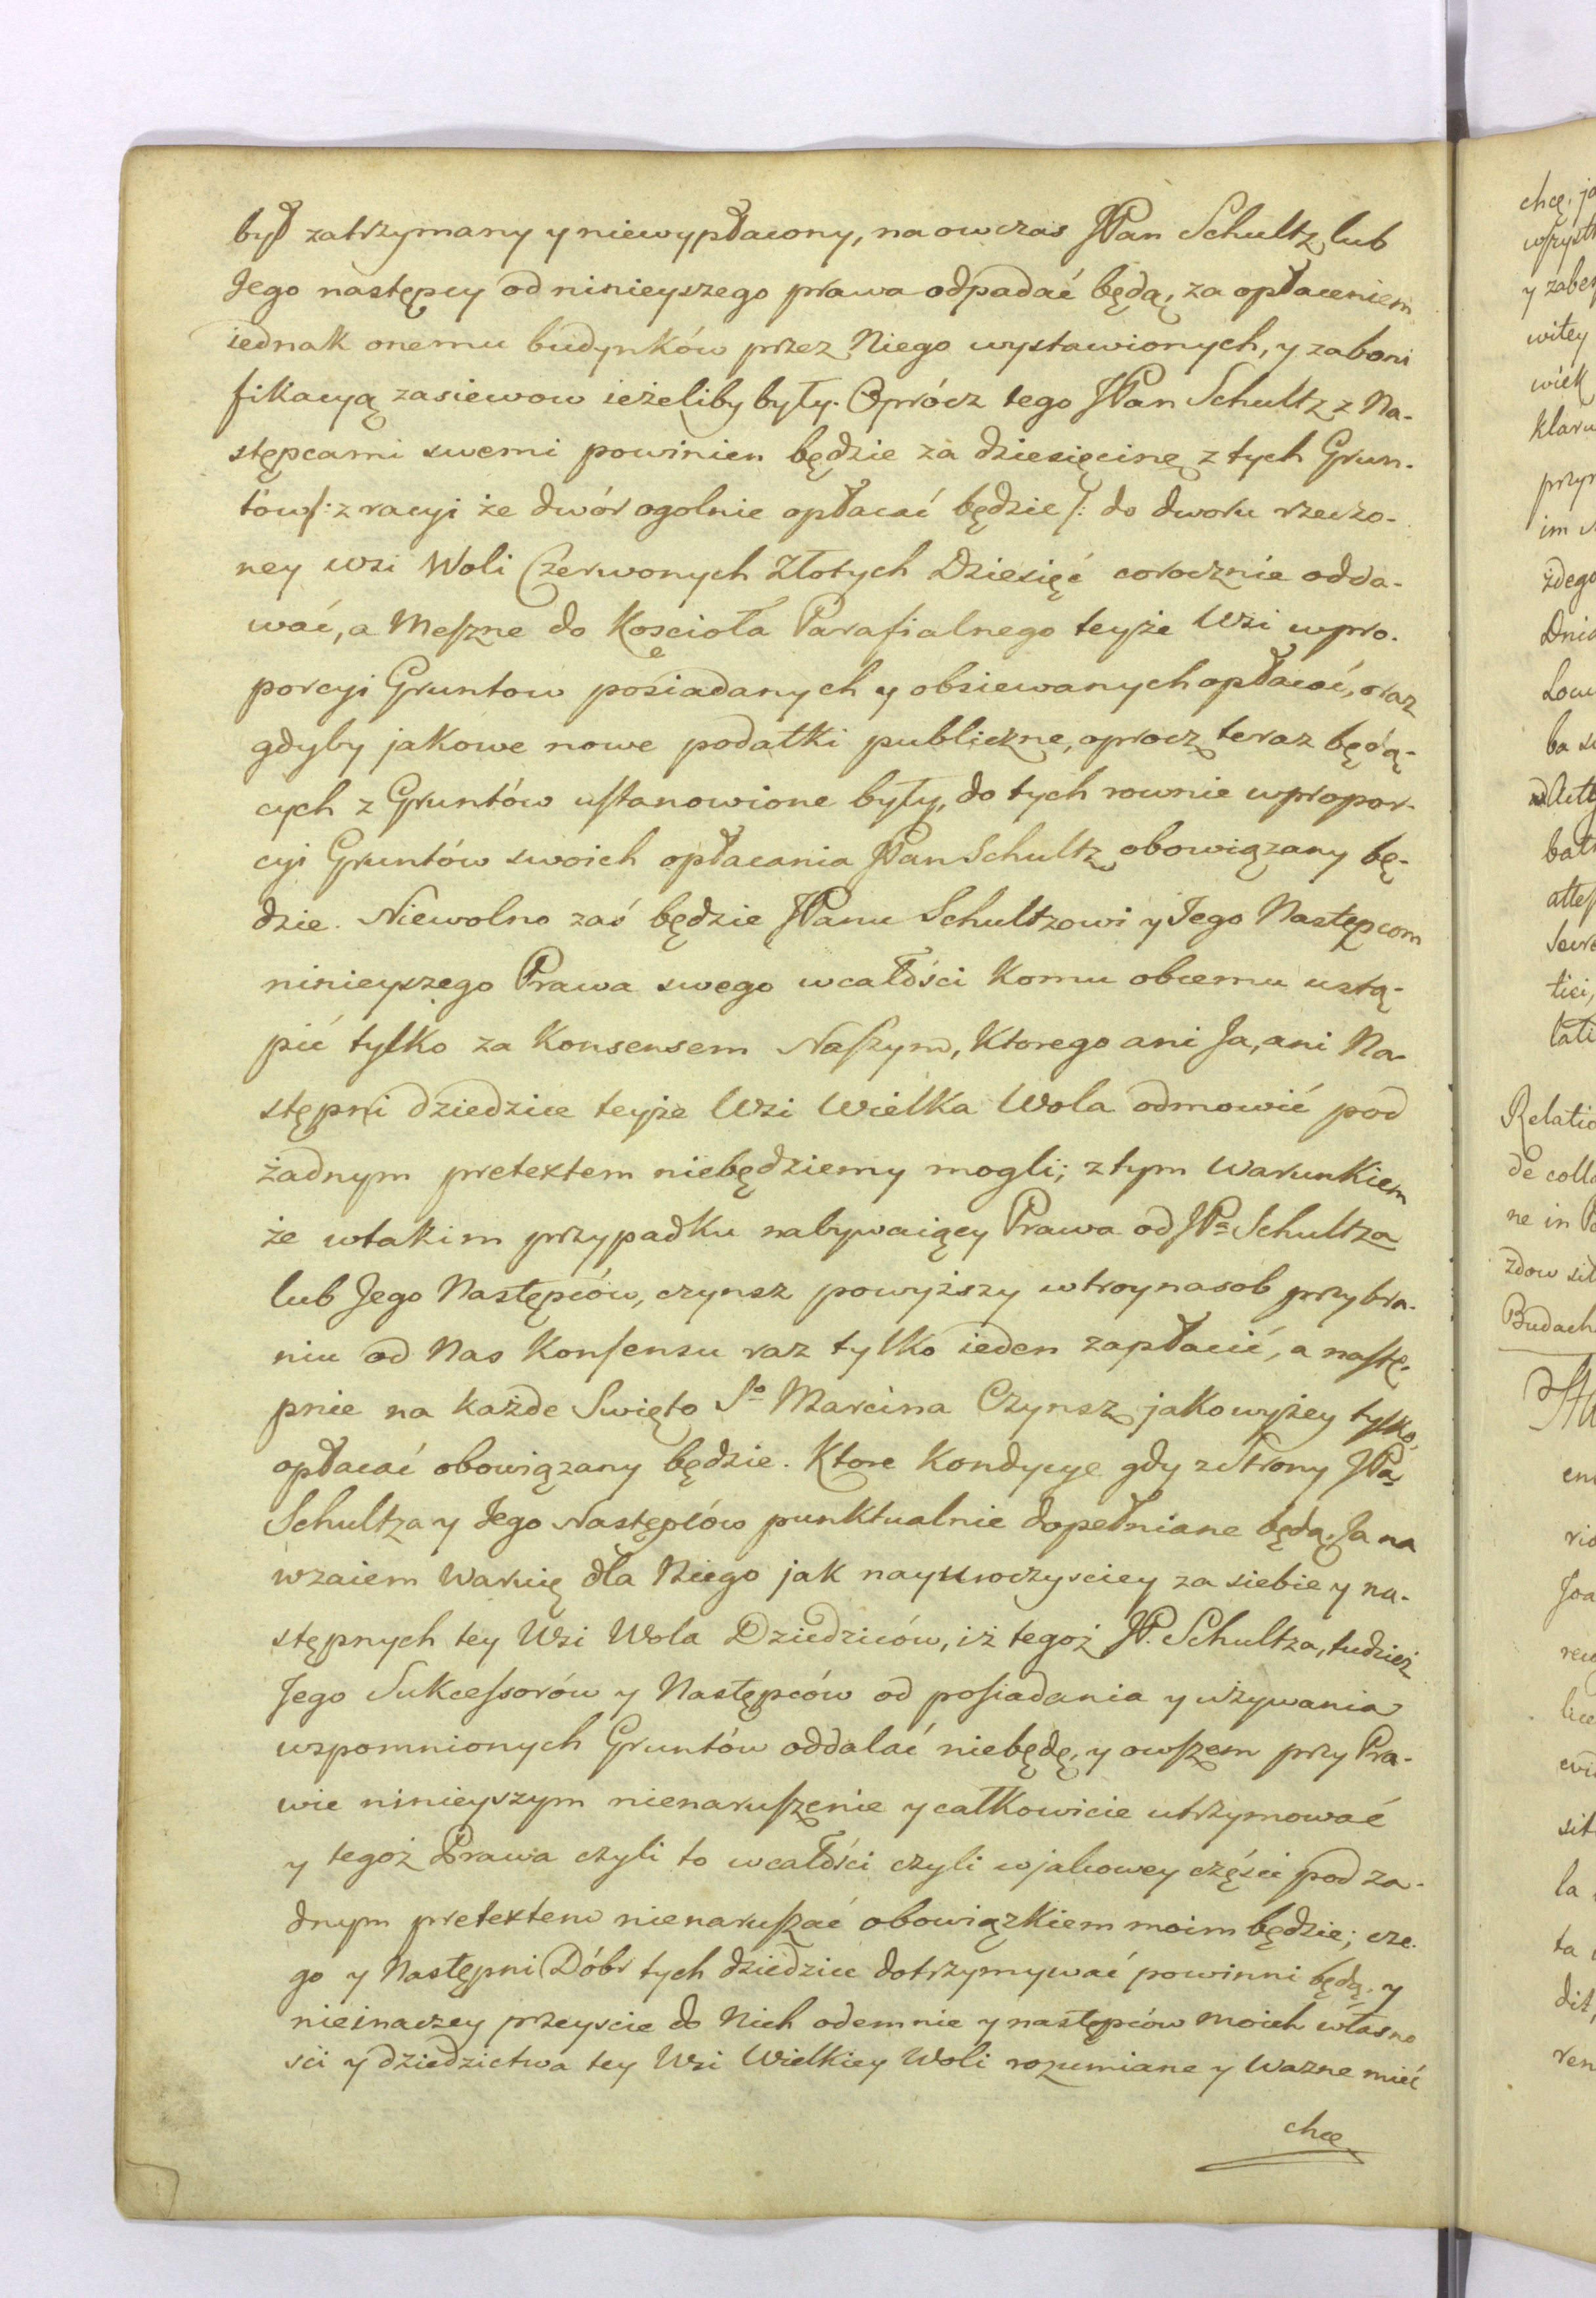 był zatrzymany y niewypłacony, na owczas JPan Schultz lub
Jego następcy od ninieyszego prawa odpadać będą, za opłaceniem
iednak onemu budynków przez Niego wystawionych, y zaboni
fikacyą zasiewow ieżeliby były. Oprócz tego JPan Schultz z Na-
stępcami swemi powinien będzie za dziesięcinę z tych Grun-
tów /: z racyi że dwór ogolnie opłacać będzie /: do dworu rzeczo-
ney wsi Woli Czerwonych Złotych Dziesięć corocznie odda-
wać, a Meszne do Koscioła Parafialnego teyże Wsi wpro-
porcyi Gruntow posiadanych y obsiewanych opłacać, oraz
gdyby jakowe nowe podatki publiczne, oprocz teraz będą-
cych z Gruntów ustanowione były, do tych rownie wpropor-
cyi Gruntów swoich opłacania JPan Schultz obowiązany bę-
dzie. Niewolno zaś będzie JPanu Schultzowi y Jego Następcom
ninieyszego Prawa swego wcałości Komu obcemu ustą-
pić tylko za Konsensem Naszym, Ktorego ani Ja, ani Na-
stępni dziedzice teyże Wsi Wielka Wola odmowić pod
żadnym pretextem niebędziemy mogli; z tym Warunkiem
że wtakim przypadku nabywaiący Prawa od JPa Schultza
lub Jego Następców, czynsz powyższy wtroynasob przy bra-
niu od Nas Konsensu raz tylko ieden zapłacić, a nastę-
pnie na każde Swięto So Marcina Czynsz jako wyżey tylko,
opłacać obowiązany będzie. Ktore Kondycye gdy z Strony JPa
Schultza y Jego Następców punktualnie dopełniane będą, Ja na
wzaiem Waruię dla Niego jak nayuroczysciey za siebie y na-
stępnych tey Wsi Wola Dziedziców, iż tegoż JP. Schultza, tudzież
Jego Sukcessorów y Następców od posiadania y używania
wspomnionych Gruntów oddalać niebędę, y owszem przy Pra-
wie ninieyszym nienaruszenie y całkowicie utrzymować
y tegoż Prawa czyli to wcałości czyli wjakowey części pod ża-
dnym pretextem nienaruszać obowiązkiem moim będzie; cze-
go y Następni Dóbr tych dziedzice dotrzymywać powinni będą, y
nieinaczey przeyscie do Nich odemnie y następców moich własno
ści y dziedzictwa tey Wsi Wielkiey Woli rozumiane y Wazne mieć
chcę

chcę, ja
wszystk
witey
wiek
klaru
przyr
im
żdego
Dnia
ba
batr
tici,
lati
Relatio
de colla
ne in
zdow
Budach
la
ta
dit,
ren